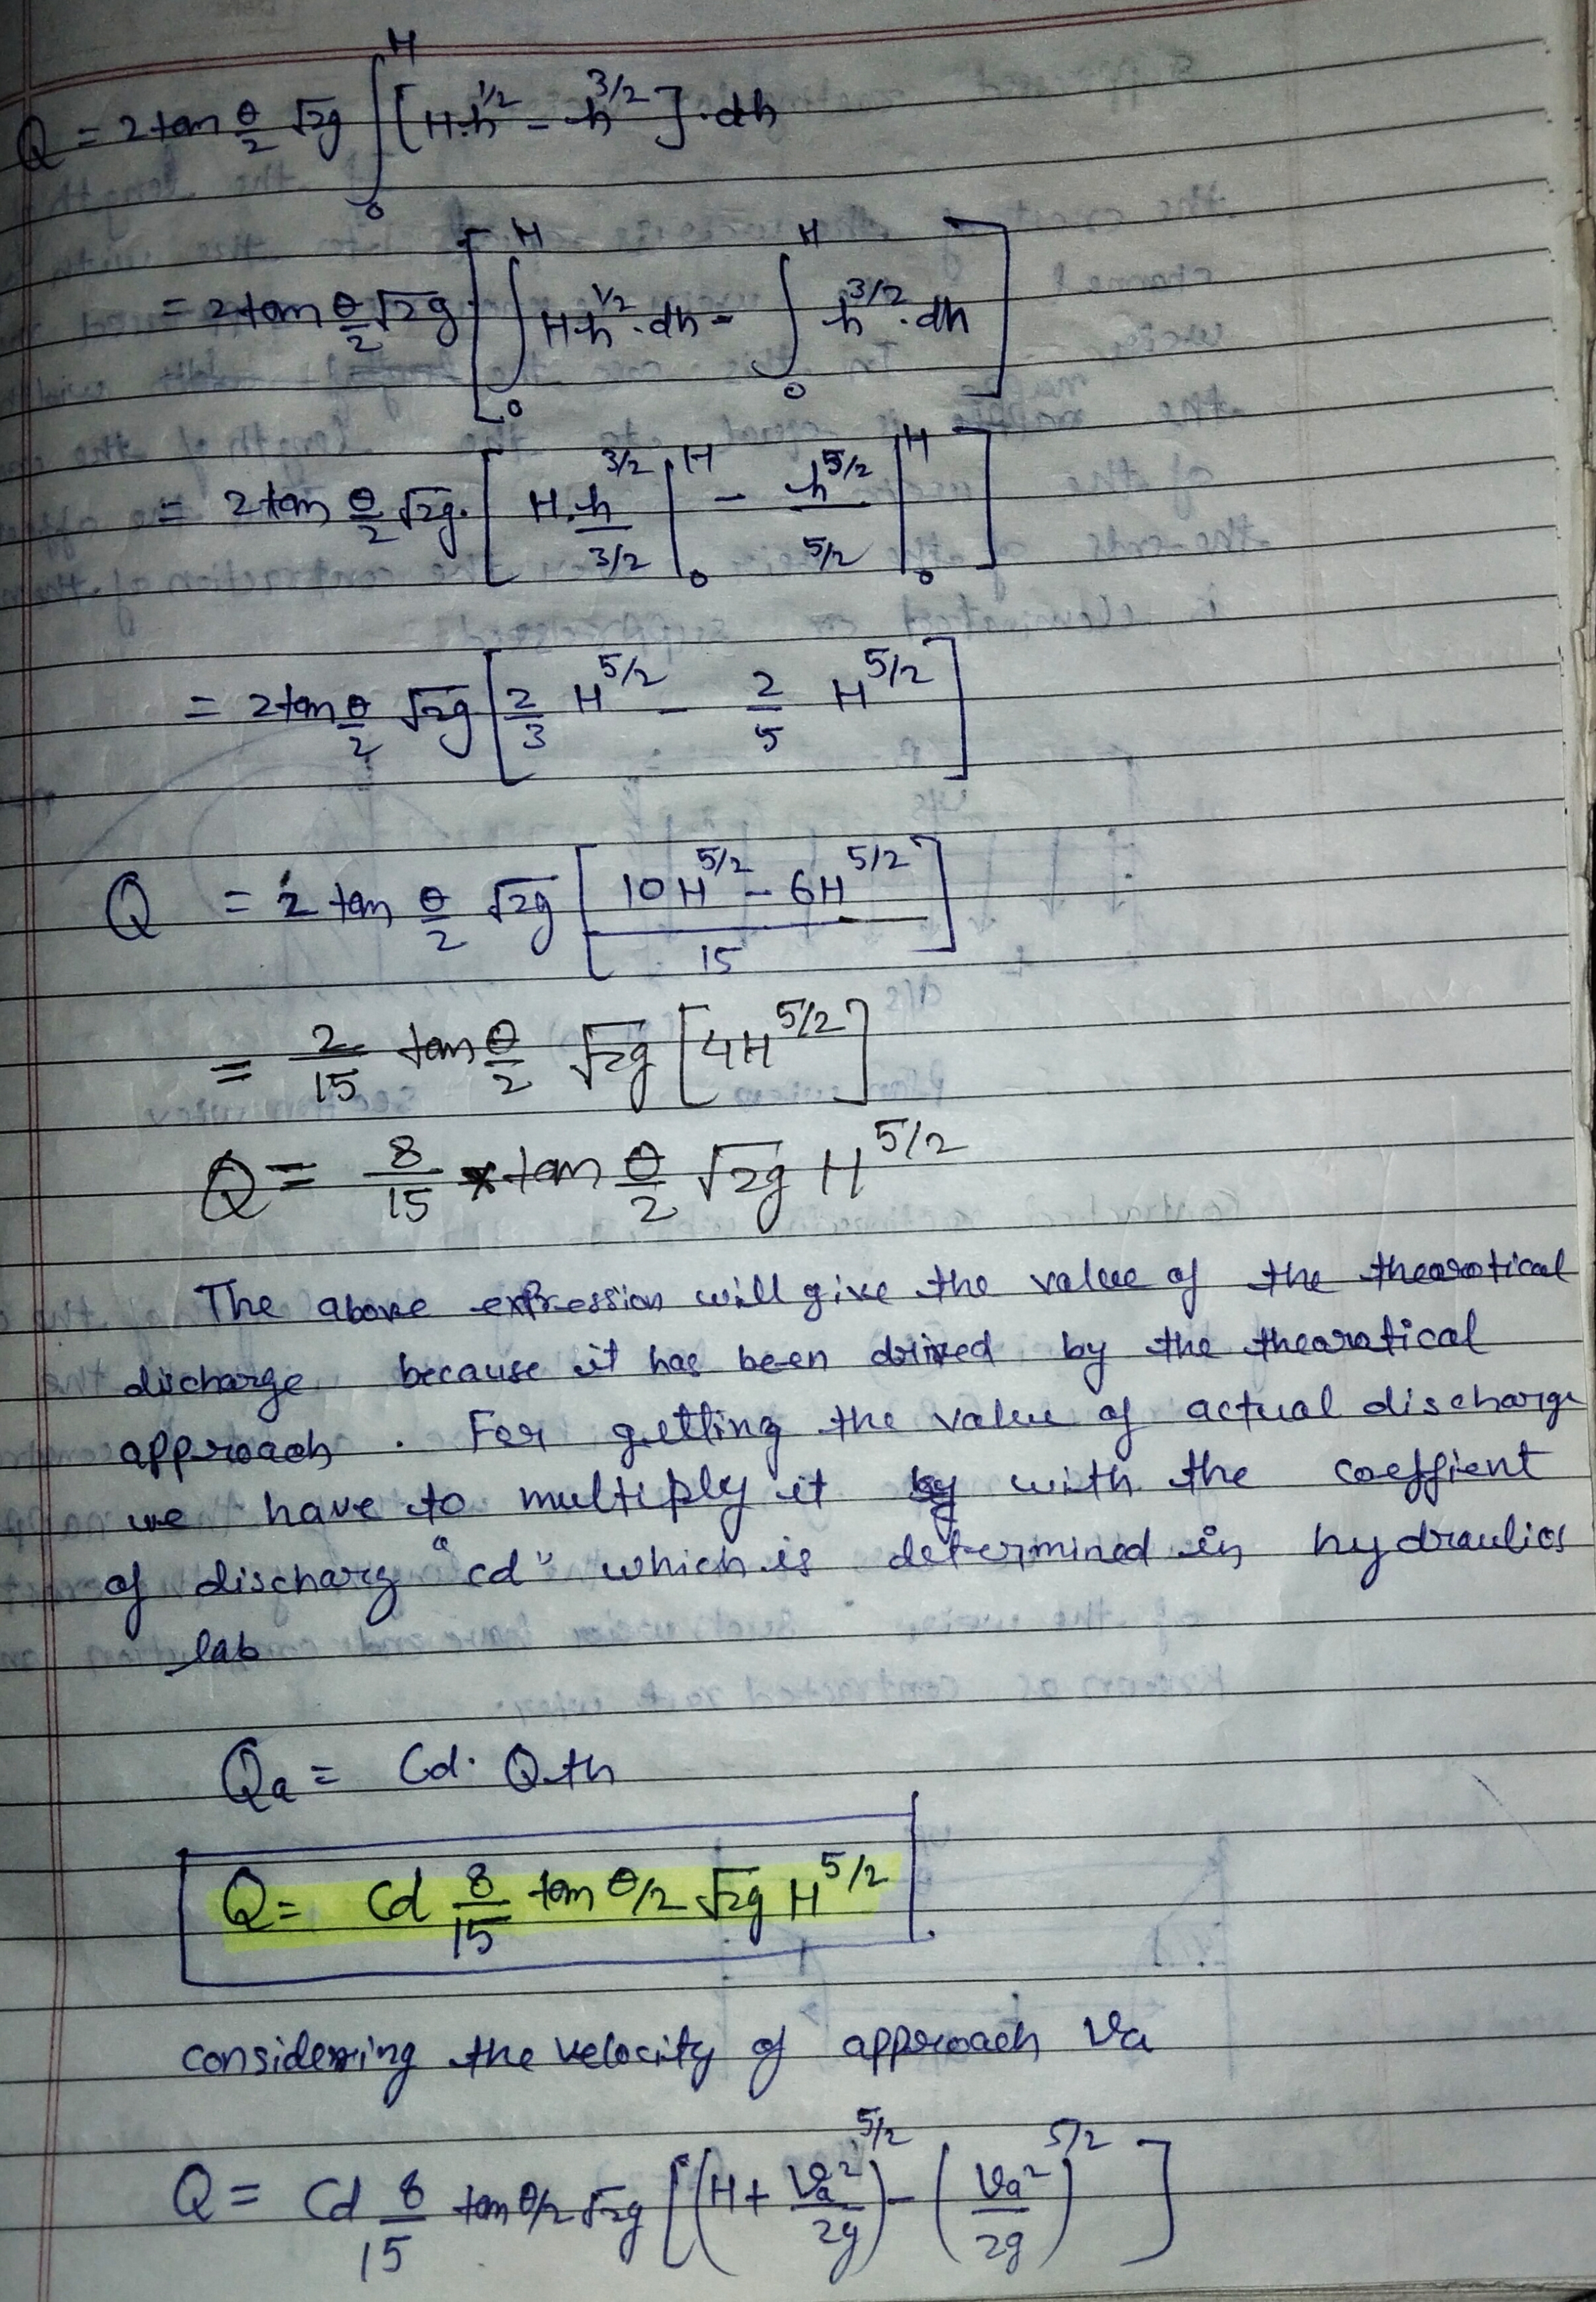 Q = 2 tan θ/2 √2g ∫₀ᴴ [H.h^1/2 - h^3/2].dh
= 2 tan θ/2 √2g [∫₀ᴴ H.h^1/2.dh - ∫₀ᴴ h^3/2.dh]
= 2 tan θ/2 √2g. [H.h^3/2 / 3/2 |₀ᴴ - h^5/2 / 5/2 |₀ᴴ]
= 2 tan θ/2 √2g [2/3 H^5/2 - 2/5 H^5/2]
Q = 2 tan θ/2 √2g [10H^5/2 - 6H^5/2 / 15]
= 2/15 tan θ/2 √2g [4H^5/2]
Q = 8/15 * tan θ/2 √2g H^5/2
The above expression will give the value of the thearotical
discharge because it has been drived by the thearatical
approach . For getting the value of actual discharge
we have to multiply it by with the coeffient
of discharg "cd" which is determined in hydraulics
lab
Qa = Cd. Qth
Q = Cd 8/15 tan θ/2 √2g H^5/2
considering the velocity of approach Va
Q = Cd 8/15 tan θ/2 √2g [(H + Va²/2g)^5/2 - (Va²/2g)^5/2]